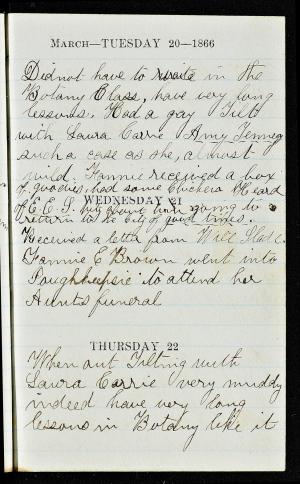 MARCH—TUESDAY 20—1866
Did not have to recite in the
Botany Class, have very long
lessons. Had a gay Tilt
with Laura Carrie Amy Tenney
such a case as she, almost
wild. Fannie received a box
of goodies, had some chicken Heard
of E. E. S.
WEDNESDAY 21
going to
return to the city of good times.
Received a letter from Will
Fannie E Brown went into
Poughkeepsie to attend her
Aunts funeral
THURSDAY 22
When out Tilting with
Laura Carrie very muddy
indeed have very long
lessons in Botany like it